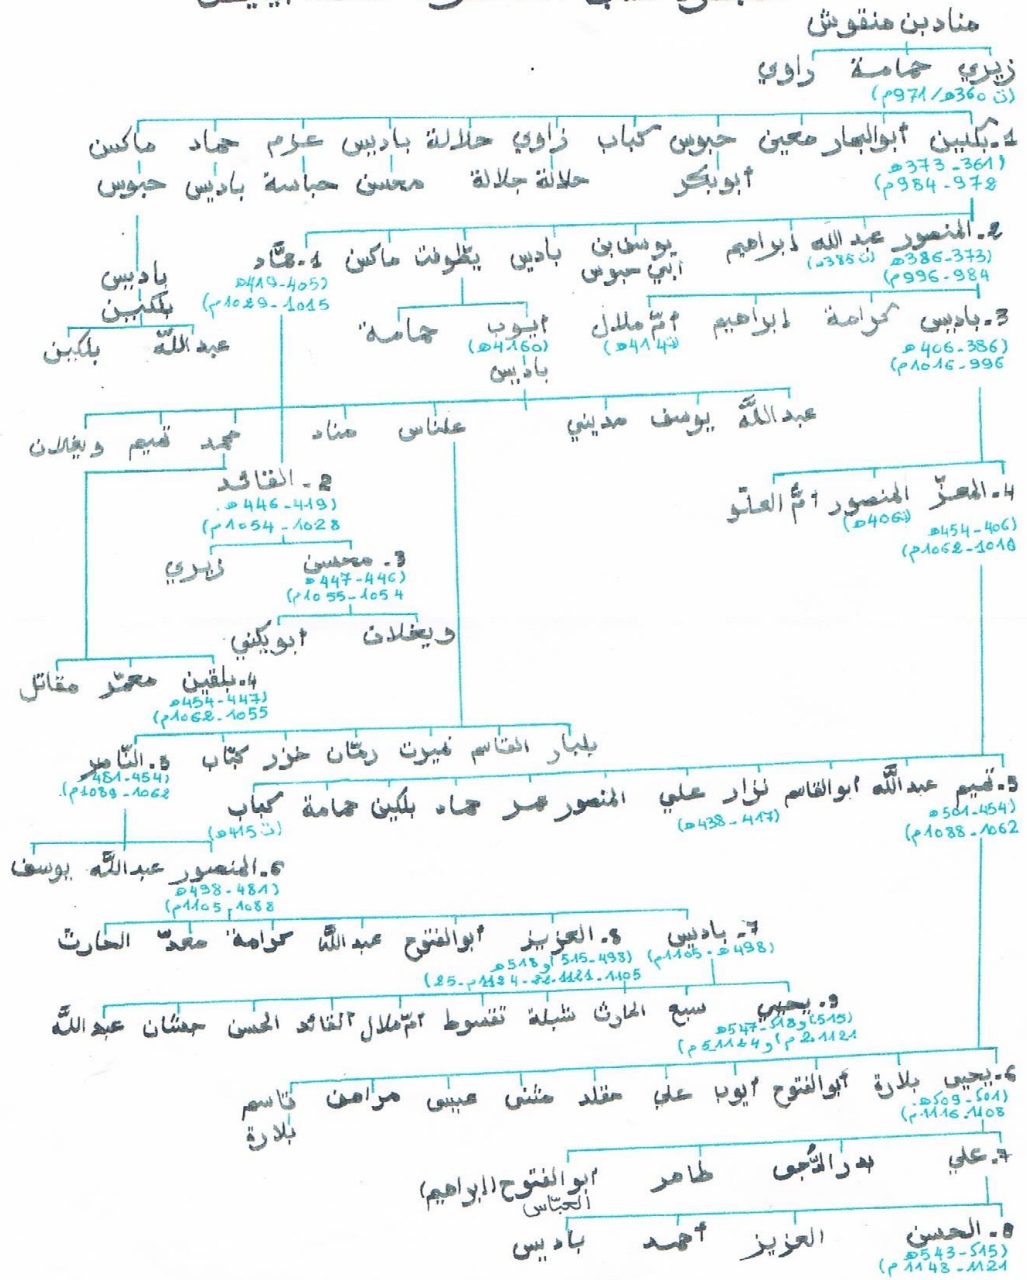 مناد بن منقوش
زيري حمامة زاوي
(ت 360هـ/971م)
1. بلكين أبو البهار معنين حبوس كباب زاوي حلالة باديس عزم حماد ماكسن
(361-373هـ
978-984م)
أبوبكر حلالة جلالة محسن حباسة باديس حبوس
2. المنصور عبد الله إبراهيم يوسف بن أبي حبوس باديس يطوفت ماكسن 1. حمّاد
(373-386هـ
984-996م)
(405-419هـ
1015-1029م)
باديس
بلكين
عبد اللّه بلكين
3. باديس كرامة إبراهيم أمّ ملال أيوب حمامة
(386-406هـ
996-1016م)
(ت414هـ)
باديس
عبد اللّه يوسف مديني علناس مناد محمد تميم ويغلان
2. القائد
(419-446هـ
1028-1054م)
4. المعزّ المنصور أمّ العلّو
(ت406هـ)
(406-454هـ
1016-1062م)
3. محسن زيري
(446-447هـ
1054-1055م)
ويغلان أبو يكني
4. بلقين معمّر مقاتل
(447-454هـ
1055-1062م)
بلبار القاسم رمّان خزر كبّاب 5. النّاصر
(454-481هـ
1062-1089م)
5. تميم عبد اللّه أبو القاسم نزار علي المنصور عمر حماد بلكين حمامة كباب
(454-501هـ
1062-1088م)
(417-438هـ)
(ت415هـ)
6. المنصور عبد اللّه يوسف
(481-498هـ
1088-1105م)
7. باديس 8. العزيز أبو الفتوح عبد اللّه كرامة معدّ الحارث
(498هـ-1105م)
(498-515 و518هـ
1105-1121-22 1124م-25)
9. يحيي سبع الحارث شبلة تقسوط أمّ ملال القائد الحسن عبد اللّه
(515) و518-547هـ
6. يحيى بلارة أبو الفتوح أيوب علي مقلد مثنى عيسى قاسم
(501-509هـ
1108-1116م)
بلارة
7. علي بدر الدّجى طاهر أبو الفتوح (إبراهيم)
العبّاس
8. الحسن العزيز أحمد باديس
(515-543هـ
1121-1148م)